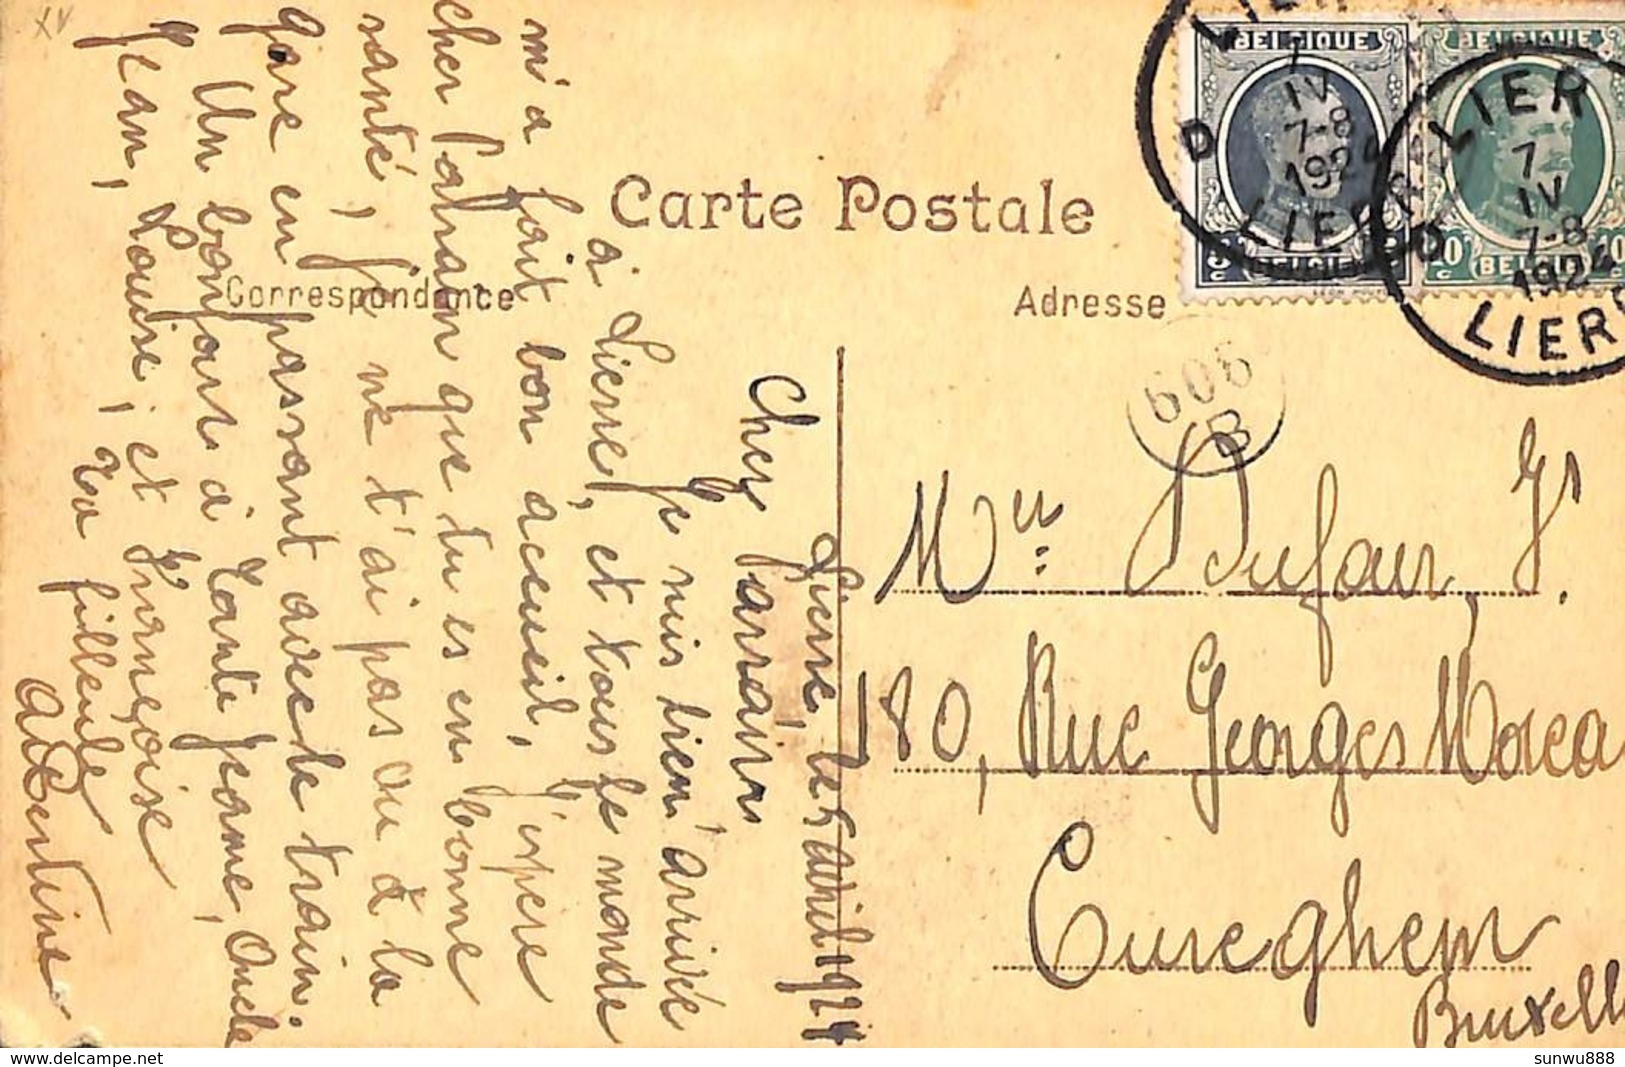 XV
Carte Postale
Correspondance
Adresse
BELGIQUE
BELGIE
BELGIQUE
BELGIE
LIER
7
IV
7-8
1924
LIER
D
LIER
7
IV
7-8
1924
LIER
D
606
B
Lierre, le 5 avril 1924
Cher Parrain
Je suis bien arrivée
à Lierre, et tous le monde
m'a fait bon acceueil, J'espère
cher Parrain que tu es en bonne
santé, Je ne t'ai pas vu à la
gare en passant avec le train.
Un bonjour à Tante Jeanne, Oncle
Jean, Louise, et Françoise
Ta filleule
Albertine
Mr Dufour, Js.
180, Rue Georges Morea
Cureghem
Bruxelle
sunwu888